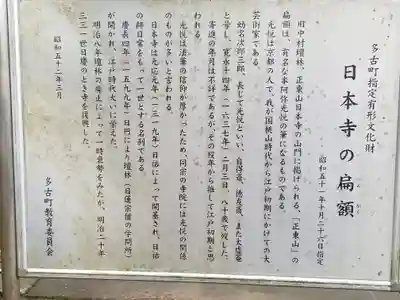 多古町指定有形文化財
日本寺の扁額
昭和五十一年十月二十六日指定
旧中村檀林、正東山日本寺の山門に掲げられる、「正東山」の
扁額は、有名な本阿弥光悦の筆になるものである。
光悦は京都の人で、我が国桃山時代から江戸初期にかけての大
芸術家である。
幼名次郎三郎、長じて光悦といい、自得斎、徳友斎、また大虚菴
と号し、寛永十四年(一六三七年)二月三日、八十歳で歿した。
寄進の年月は不詳であるが、その歿年から推して江戸初期と思
われる。
光悦は法華の信仰が厚かったため、同宗の寺院には光悦の関係
のものが多いと言われる。
日本寺は元応元年(一三一九年)日祐によって開基され、日祐
の師日常をもって一世とする名刹である。
慶長四年(一五九九年)日円により檀林(日蓮宗僧の学問所)
が開かれ、江戸時代大いに栄えた。
明治八年檀林の廃止によって一時衰勢をみたが、明治二十年
三三一世日慶のときを復興した。
昭和五十二年三月
多古町教育委員会